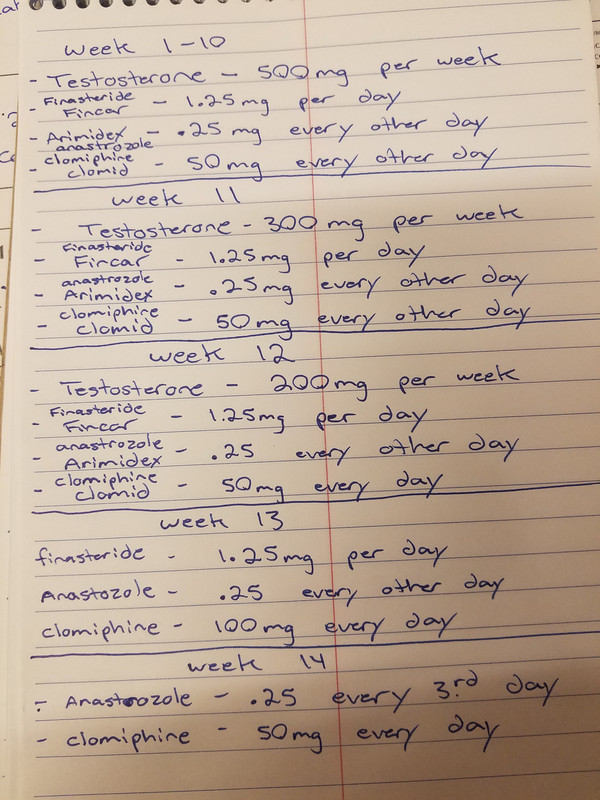 week 1-10
- Testosterone - 500mg per week
- Finasteride
Fincar - 1.25mg per day
- Arimidex - .25 mg every other day
anastrozole
- clomiphine
clomid - 50mg every other day
week 11
- Testosterone - 300mg per week
- Finasteride
Fincar - 1.25mg per day
- anastrozole
Arimidex - .25mg every other day
- clomiphine
clomid - 50mg every other day
week 12
- Testosterone - 200mg per week
- Finasteride
Fincar - 1.25mg per day
- anastrozole
Arimidex - .25 every other day
- clomiphine
clomid - 50mg every day
week 13
finasteride - 1.25mg per day
Anastozole - .25 every other day
clomiphine - 100mg every day
week 14
- Anastrozole - .25 every 3rd day
- clomiphine - 50mg every day